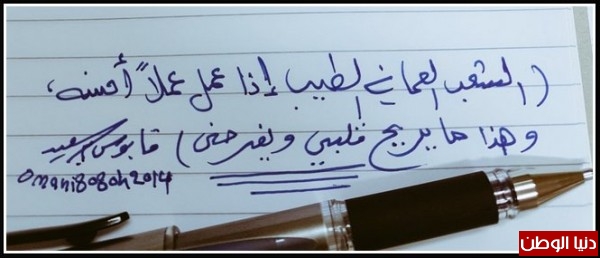 (الشعب العماني الطيب إذا عمل عملاً أحسنه،
وهذا ما يريح قلبي ويفرحني) قابوس بن سعيد
omanisabah2014
دنيا الوطن